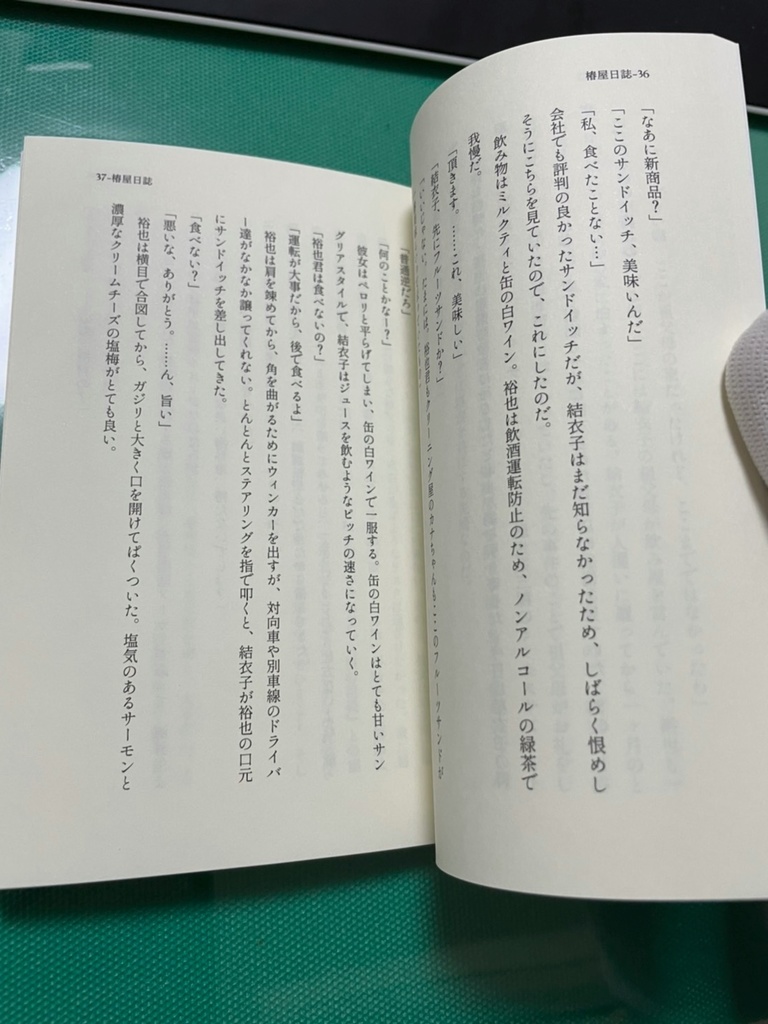 椿屋日誌-36
「なあに新商品？」
「ここのサンドイッチ、美味いんだ」
「私、食べたことない…」
会社でも評判の良かったサンドイッチだが、結衣子はまだ知らなかったため、しばらく恨めし
そうにこちらを見ていたので、これにしたのだ。
飲み物はミルクティと缶の白ワイン。裕也は飲酒運転防止のため、ノンアルコールの緑茶で
我慢だ。
「頂きます。……これ、美味しい」
「結衣子、先にフルーツサンドか？」
「いいじゃない、たまには。裕也君もクリーニング屋のカナちゃんもここのフルーツサンドが
37-椿屋日誌
「普通逆だろ」
「何のことかなー？」
彼女はペロリと平らげてしまい、缶の白ワインで一服する。缶の白ワインはとても甘いサン
グリアスタイルで、結衣子はジュースを飲むようなピッチの速さになっていく。
「裕也君は食べないの？」
「運転が大事だから、後で食べるよ」
裕也は肩を竦めてから、角を曲がるためにウィンカーを出すが、対向車や別車線のドライバ
ー達がなかなか譲ってくれない。とんとんとステアリングを指で叩くと、結衣子が裕也の口元
にサンドイッチを差し出してきた。
「食べない？」
「悪いな、ありがとう。……ん、旨い」
裕也は横目で合図してから、ガジリと大きく口を開けてぱくついた。塩気のあるサーモンと
濃厚なクリームチーズの塩梅がとても良い。